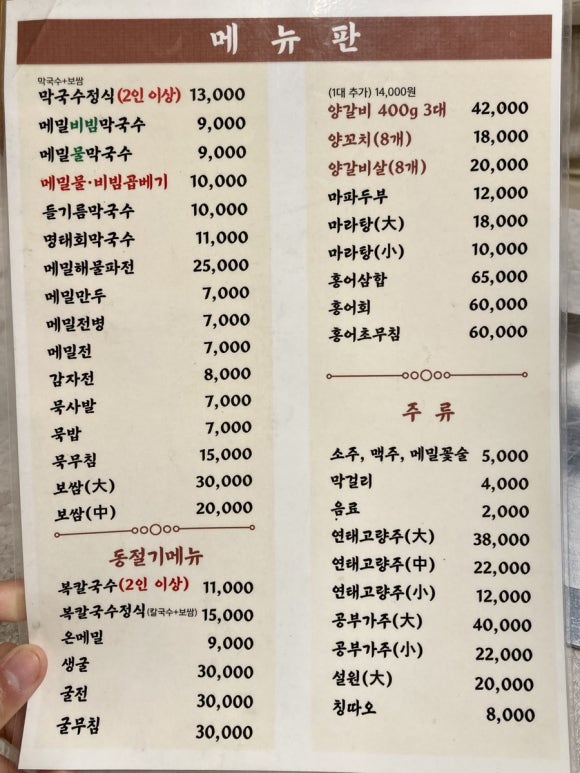 메뉴판
막국수+보쌈
막국수정식(2인 이상) 13,000
메밀비빔막국수 9,000
메밀물막국수 9,000
메밀물·비빔곱베기 10,000
들기름막국수 10,000
명태회막국수 11,000
메밀해물파전 25,000
메밀만두 7,000
메밀전병 7,000
메밀전 7,000
감자전 8,000
묵사발 7,000
묵밥 7,000
묵무침 15,000
보쌈(大) 30,000
보쌈(中) 20,000
동절기메뉴
복칼국수(2인 이상) 11,000
복칼국수정식(칼국수+보쌈) 15,000
온메밀 9,000
생굴 30,000
굴전 30,000
굴무침 30,000
(1대 추가) 14,000원
양갈비 400g 3대 42,000
양꼬치(8개) 18,000
양갈비살(8개) 20,000
마파두부 12,000
마라탕(大) 18,000
마라탕(小) 10,000
홍어삼합 65,000
홍어회 60,000
홍어초무침 60,000
주류
소주, 맥주, 메밀꽃술 5,000
막걸리 4,000
음료 2,000
연태고량주(大) 38,000
연태고량주(中) 22,000
연태고량주(小) 12,000
공부가주(大) 40,000
공부가주(小) 22,000
설원(大) 20,000
칭따오 8,000